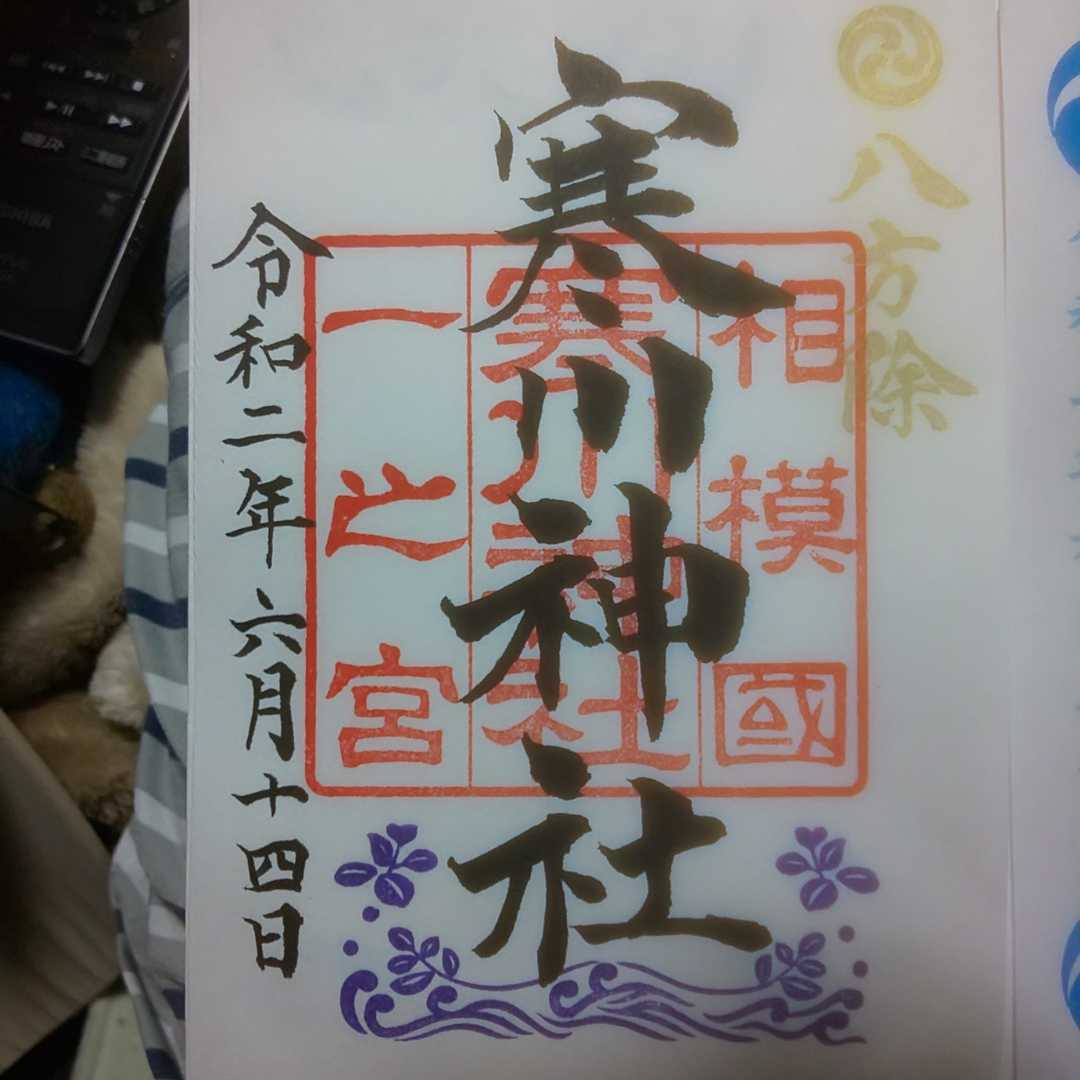 八方除
相模國
寒川神社
寒川神社
一之宮
令和二年六月十四日